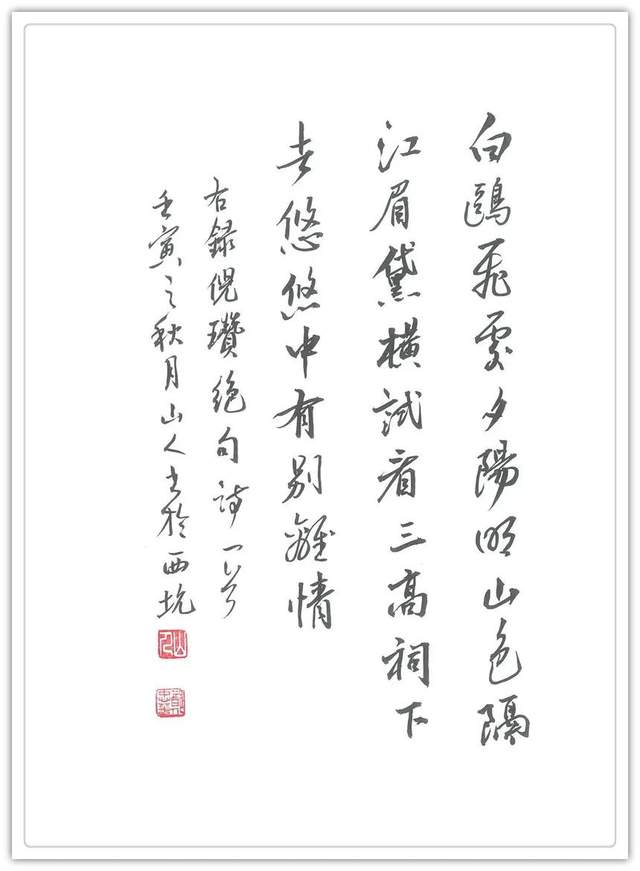 白鷗飛處夕陽明山色隔
江眉黛橫試看三高祠下
悠悠中有别離情
右録倪瓚絕句詩一首
壬寅之秋月山人书於西坑
山人